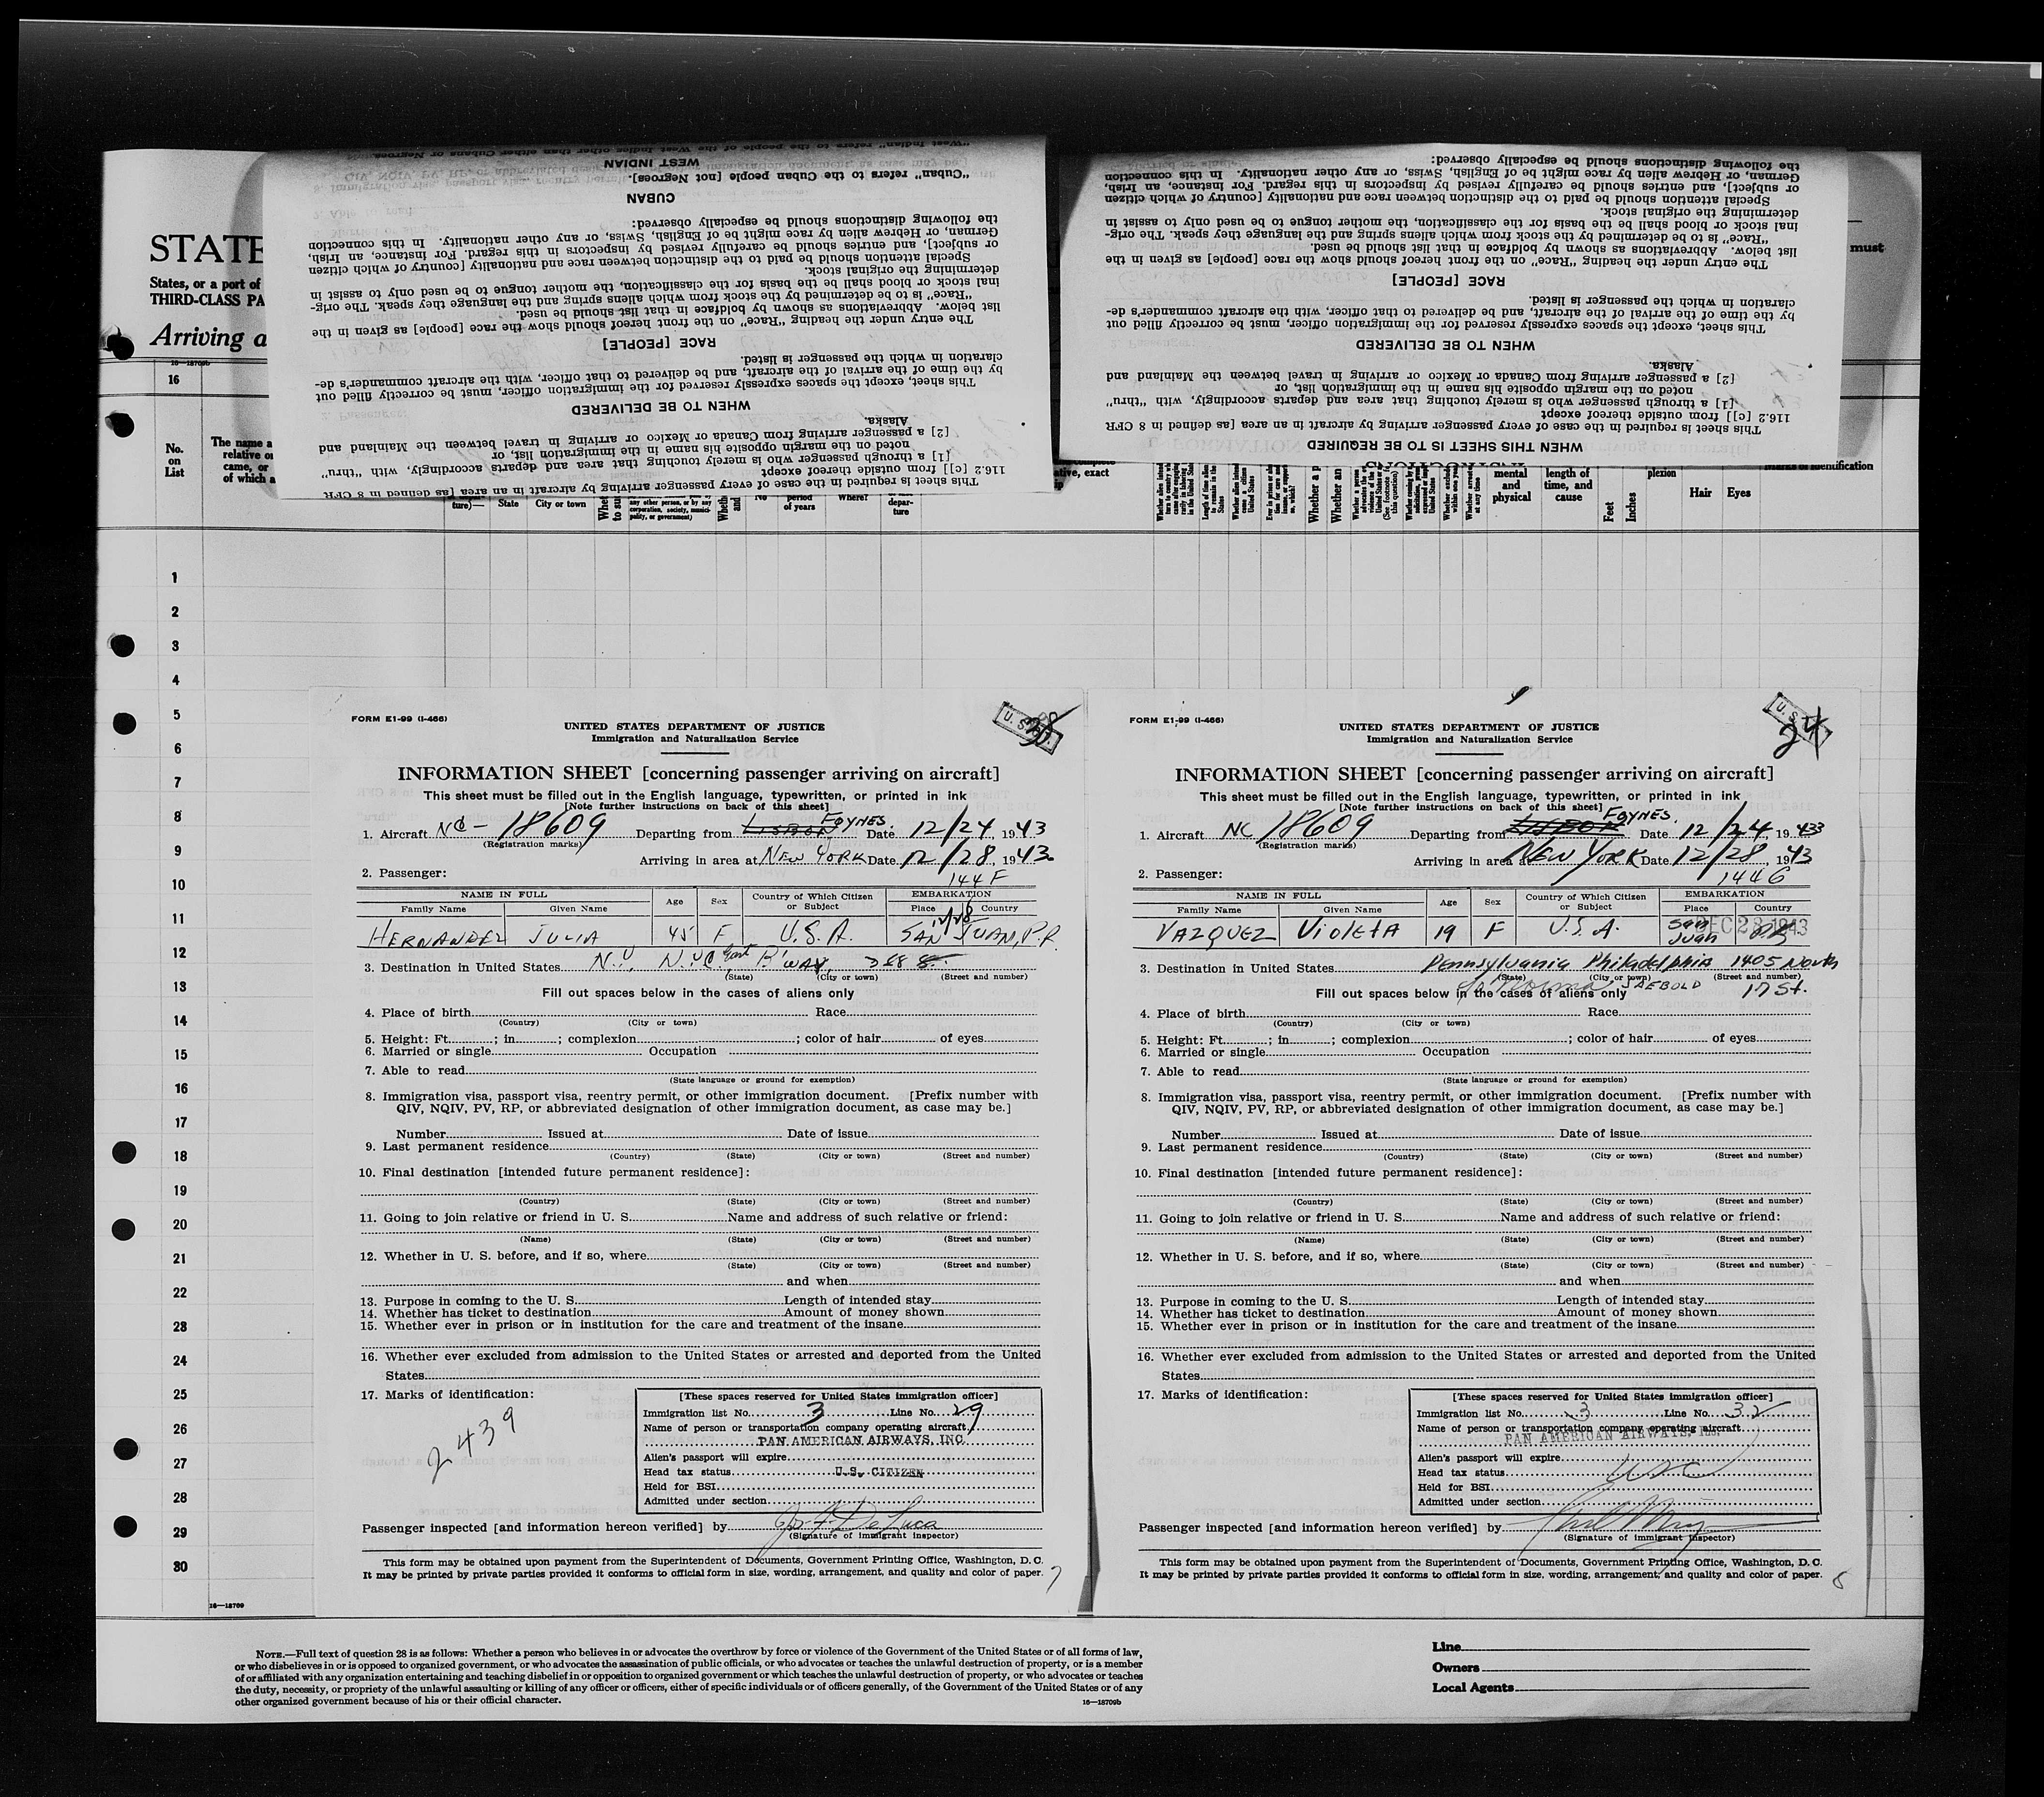 "West Indian" refers to the people of the West Indies other than either Cubans or Negroes.
WEST INDIAN
"Cuban" refers to the Cuban people [not Negroes].
CUBAN
the following distinctions should be especially observed:
German, or Hebrew alien by race might be of English, Swiss, or any other nationality. In this connection
or subject], and entries should be carefully revised by inspectors in this regard. For instance, an Irish,
Special attention should be paid to the distinction between race and nationality [country of which citizen
determining the original stock.
inal stock or blood shall be the basis for the classification, the mother tongue to be used only to assist in
"Race" is to be determined by the stock from which aliens spring and the language they speak. The orig-
list below. Abbreviations as shown by boldface in that list should be used.
The entry under the heading "Race" on the front hereof should show the race [people] as given in the
RACE [PEOPLE]
claration in which the passenger is listed.
by the time of the arrival of the aircraft, and be delivered to that officer, with the aircraft commander's de-
This sheet, except the spaces expressly reserved for the immigration officer, must be correctly filled out
WHEN TO BE DELIVERED
Alaska.
[2] a passenger arriving from Canada or Mexico or arriving in travel between the Mainland and
noted on the margin opposite his name in the immigration list, or
[1] a through passenger who is merely touching that area and departs accordingly, with "thru"
116.2 [c]] from outside thereof except
This sheet is required in the case of every passenger arriving by aircraft in an area [as defined in 8 CFR
the following distinctions should be especially observed:
German, or Hebrew alien by race might be of English, Swiss, or any other nationality. In this connection
or subject], and entries should be carefully revised by inspectors in this regard. For instance, an Irish,
Special attention should be paid to the distinction between race and nationality [country of which citizen
determining the original stock.
inal stock or blood shall be the basis for the classification, the mother tongue to be used only to assist in
"Race" is to be determined by the stock from which aliens spring and the language they speak. The orig-
list below. Abbreviations as shown by boldface in that list should be used.
The entry under the heading "Race" on the front hereof should show the race [people] as given in the
RACE [PEOPLE]
claration in which the passenger is listed.
by the time of the arrival of the aircraft, and be delivered to that officer, with the aircraft commander's de-
This sheet, except the spaces expressly reserved for the immigration officer, must be correctly filled out
WHEN TO BE DELIVERED
Alaska.
[2] a passenger arriving from Canada or Mexico or arriving in travel between the Mainland and
noted on the margin opposite his name in the immigration list, or
[1] a through passenger who is merely touching that area and departs accordingly, with "thru"
116.2 [c]] from outside thereof except
This sheet is required in the case of every passenger arriving by aircraft in an area [as defined in 8 CFR
WHEN THIS SHEET IS TO BE REQUIRED
STATE
must
States, or a port of
THIRD-CLASS PA
Arriving a
16—18709b
16
No. on List
The name a
relative or
came, or
of which a
ture)—
State
City or town
any other person, or by any corporation, society, munici- pality, or government)
No
period of years
Where?
depar- ture
ative, exact
mental and physical
length of time, and cause
Feet
Inches
plexion
Hair
Eyes
Marks of identification
1
2
3
4
5
6
7
8
9
10
11
12
13
14
15
16
17
18
19
20
21
22
23
24
25
26
27
28
29
30
16—18709
FORM E1-99 (I-466)
UNITED STATES DEPARTMENT OF JUSTICE
Immigration and Naturalization Service
INFORMATION SHEET [concerning passenger arriving on aircraft]
This sheet must be filled out in the English language, typewritten, or printed in ink
[Note further instructions on back of this sheet]
1. Aircraft NC-18609 Departing from LISBON FOYNES. Date 12/24 1943
(Registration marks)
Arriving in area at NEW YORK Date 12/28, 1943
2. Passenger: 144 F
NAME IN FULL Age Sex Country of Which Citizen or Subject EMBARKATION
Family Name Given Name Place Country
12/28
HERNANDEZ JULIA 45 F U.S.A. SAN JUAN, P.R.
3. Destination in United States N.Y. N.Y.C. East B'way, 288
(State) (City or town) (Street and number)
Fill out spaces below in the cases of aliens only
4. Place of birth Race
(Country) (City or town)
5. Height: Ft. ; in ; complexion ; color of hair of eyes
6. Married or single Occupation
7. Able to read
(State language or ground for exemption)
8. Immigration visa, passport visa, reentry permit, or other immigration document. [Prefix number with
QIV, NQIV, PV, RP, or abbreviated designation of other immigration document, as case may be.]
Number Issued at Date of issue
9. Last permanent residence
(Country) (State) (City or town) (Street and number)
10. Final destination [intended future permanent residence]:
(Country) (State) (City or town) (Street and number)
11. Going to join relative or friend in U. S. Name and address of such relative or friend:
(Name) (State) (City or town) (Street and number)
12. Whether in U. S. before, and if so, where
(State) (City or town) (Street and number)
and when
13. Purpose in coming to the U. S. Length of intended stay
14. Whether has ticket to destination Amount of money shown
15. Whether ever in prison or in institution for the care and treatment of the insane
16. Whether ever excluded from admission to the United States or arrested and deported from the United
States
17. Marks of identification:
2439
[These spaces reserved for United States immigration officer]
Immigration list No. 3 Line No. 29
Name of person or transportation company operating aircraft
PAN AMERICAN AIRWAYS, INC.
Alien's passport will expire
Head tax status U.S. CITIZEN
Held for BSI
Admitted under section
Passenger inspected [and information hereon verified] by De Luca
(Signature of immigrant inspector)
This form may be obtained upon payment from the Superintendent of Documents, Government Printing Office, Washington, D. C.
It may be printed by private parties provided it conforms to official form in size, wording, arrangement, and quality and color of paper.
7
FORM E1-99 (I-466)
24
UNITED STATES DEPARTMENT OF JUSTICE
Immigration and Naturalization Service
INFORMATION SHEET [concerning passenger arriving on aircraft]
This sheet must be filled out in the English language, typewritten, or printed in ink
[Note further instructions on back of this sheet]
1. Aircraft NC 18609 Departing from LISBON FOYNES. Date 12/24, 1943
(Registration marks)
Arriving in area NEW YORK Date 12/28, 1943
2. Passenger: 144 G
NAME IN FULL Age Sex Country of Which Citizen or Subject EMBARKATION
Family Name Given Name Place Country
DEC 28 1943
VAZQUEZ VioletA 19 F U.S.A. San Juan P.R.
3. Destination in United States Pennsylvania Philadelphia 1405 North
(State) (City or town) (Street and number)
17 St.
SAEBOLD
Fill out spaces below in the cases of aliens only
4. Place of birth Race
(Country) (City or town)
5. Height: Ft. ; in ; complexion ; color of hair of eyes
6. Married or single Occupation
7. Able to read
(State language or ground for exemption)
8. Immigration visa, passport visa, reentry permit, or other immigration document. [Prefix number with
QIV, NQIV, PV, RP, or abbreviated designation of other immigration document, as case may be.]
Number Issued at Date of issue
9. Last permanent residence
(Country) (State) (City or town) (Street and number)
10. Final destination [intended future permanent residence]:
(Country) (State) (City or town) (Street and number)
11. Going to join relative or friend in U. S. Name and address of such relative or friend:
(Name) (State) (City or town) (Street and number)
12. Whether in U. S. before, and if so, where
(State) (City or town) (Street and number)
and when
13. Purpose in coming to the U. S. Length of intended stay
14. Whether has ticket to destination Amount of money shown
15. Whether ever in prison or in institution for the care and treatment of the insane
16. Whether ever excluded from admission to the United States or arrested and deported from the United
States
17. Marks of identification:
[These spaces reserved for United States immigration officer]
Immigration list No. 3 Line No. 32
Name of person or transportation company operating aircraft
PAN AMERICAN AIRWAYS, INC.
Alien's passport will expire
Head tax status USC
Held for BSI
Admitted under section
Passenger inspected [and information hereon verified] by
(Signature of immigrant inspector)
This form may be obtained upon payment from the Superintendent of Documents, Government Printing Office, Washington, D. C.
It may be printed by private parties provided it conforms to official form in size, wording, arrangement, and quality and color of paper.
8
NOTE.—Full text of question 28 is as follows: Whether a person who believes in or advocates the overthrow by force or violence of the Government of the United States or of all forms of law,
or who disbelieves in or is opposed to organized government, or who advocates the assassination of public officials, or who advocates or teaches the unlawful destruction of property, or is a member
of or affiliated with any organization entertaining and teaching disbelief in or opposition to organized government or which teaches the unlawful destruction of property, or who advocates or teaches
the duty, necessity, or propriety of the unlawful assaulting or killing of any officer or officers, either of specific individuals or of officers generally, of the Government of the United States or of any
other organized government because of his or their official character.
16—18709b
Line
Owners
Local Agents